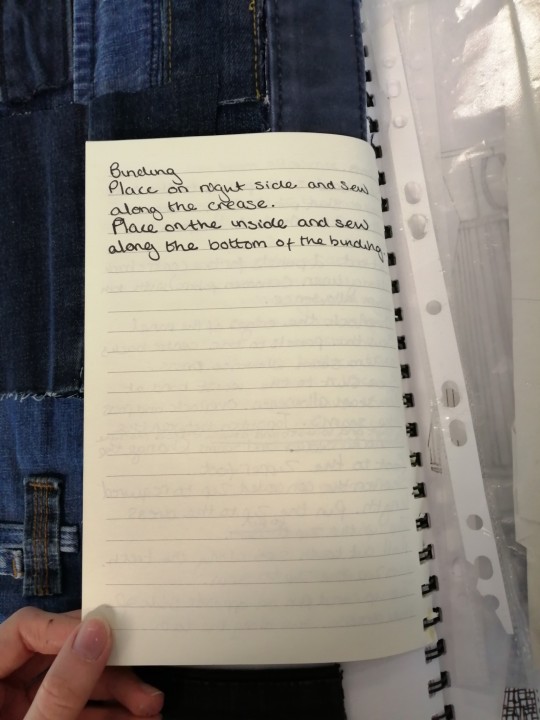 Binding
Place on right side and sew
along the crease.
Place on the inside and sew
along the bottom of the binding